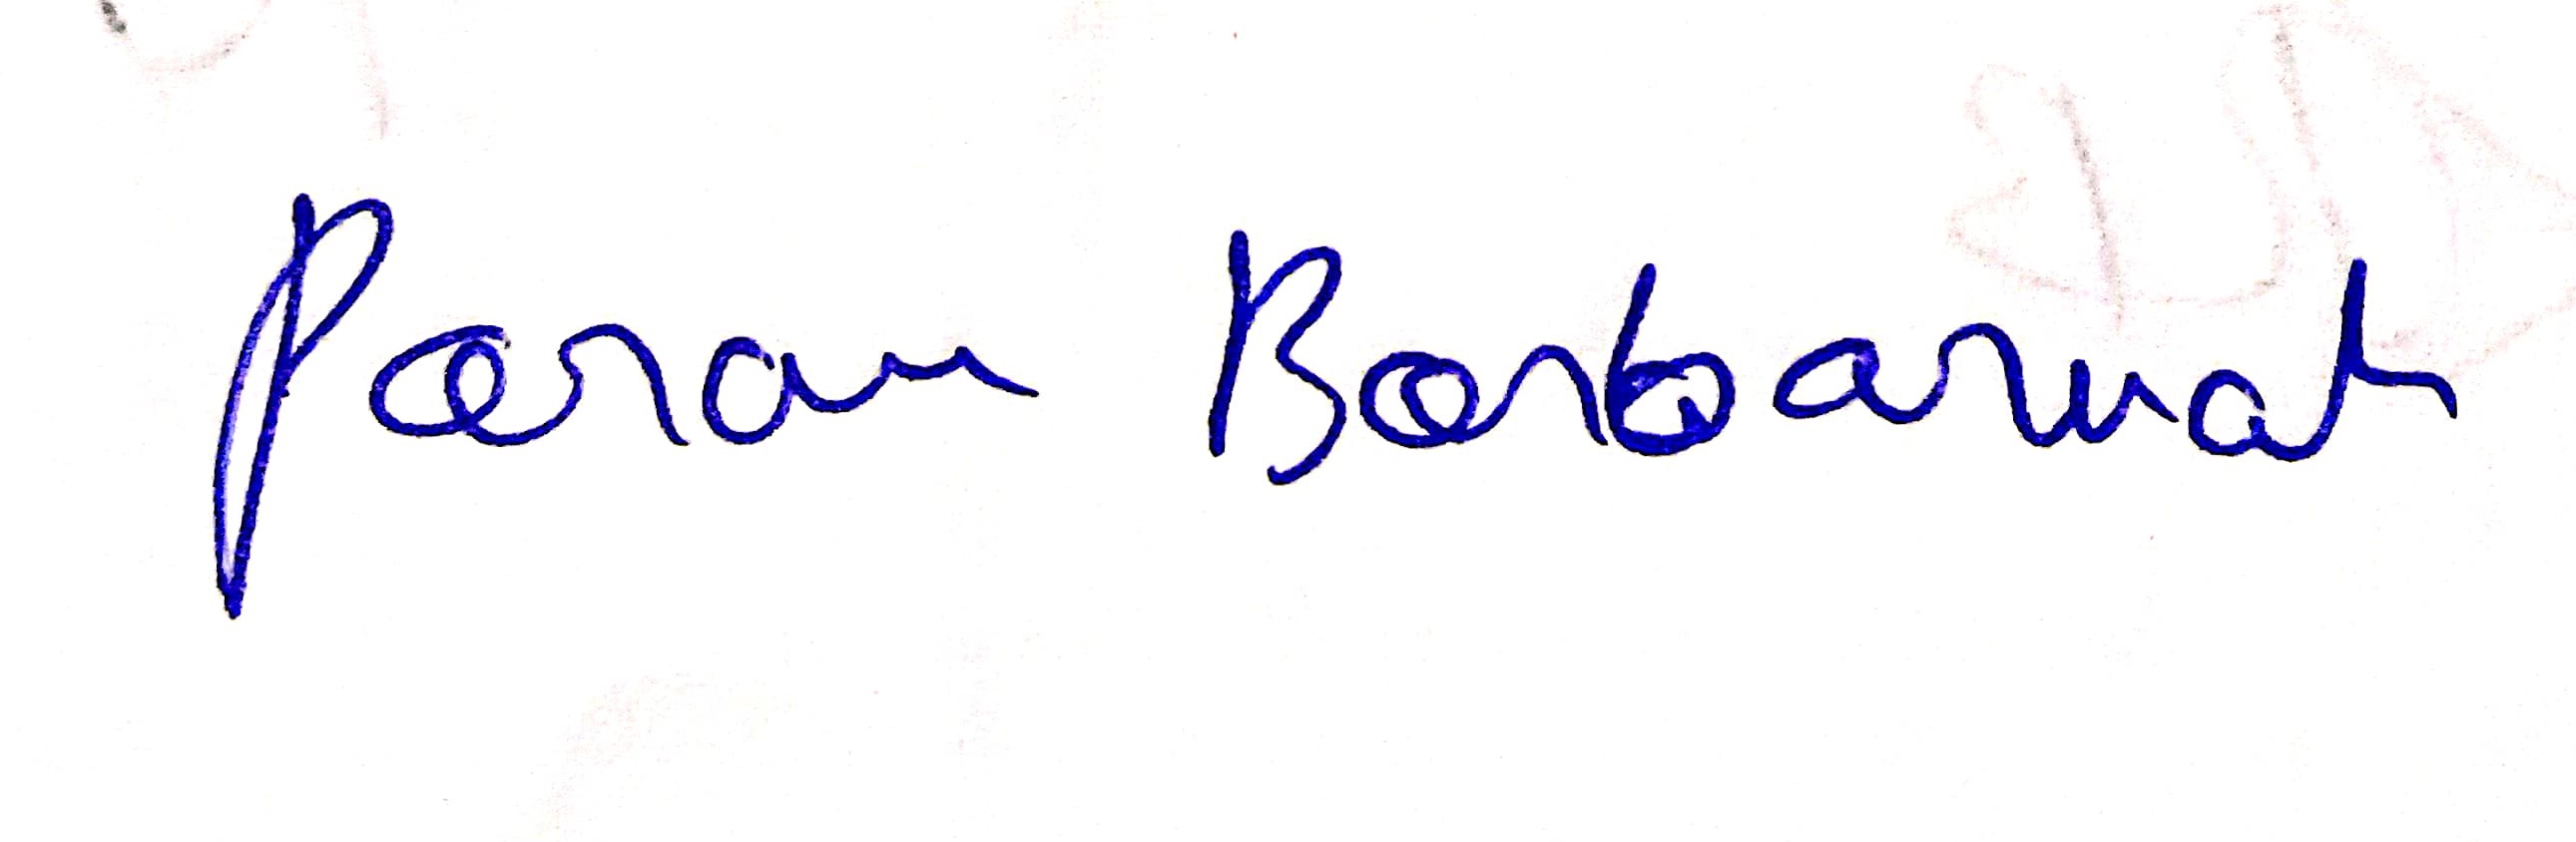 Param Barbaruah